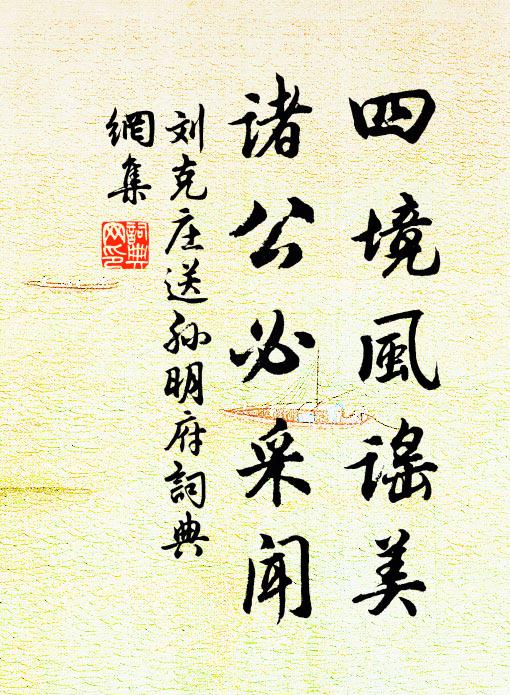 四境風謠美
諸公必采聞
刘克庄送孙明府詞典
網集
詞典
网印